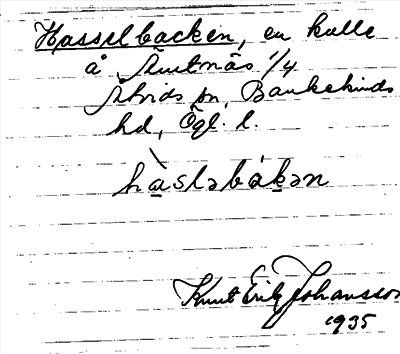 Hasselbacken, en kulle
å Slutnäs 1/4
Åtvids sn, Bankekinds
hd, Ögl. l.
hàsləbákən
Knut Erik Johansson
1935